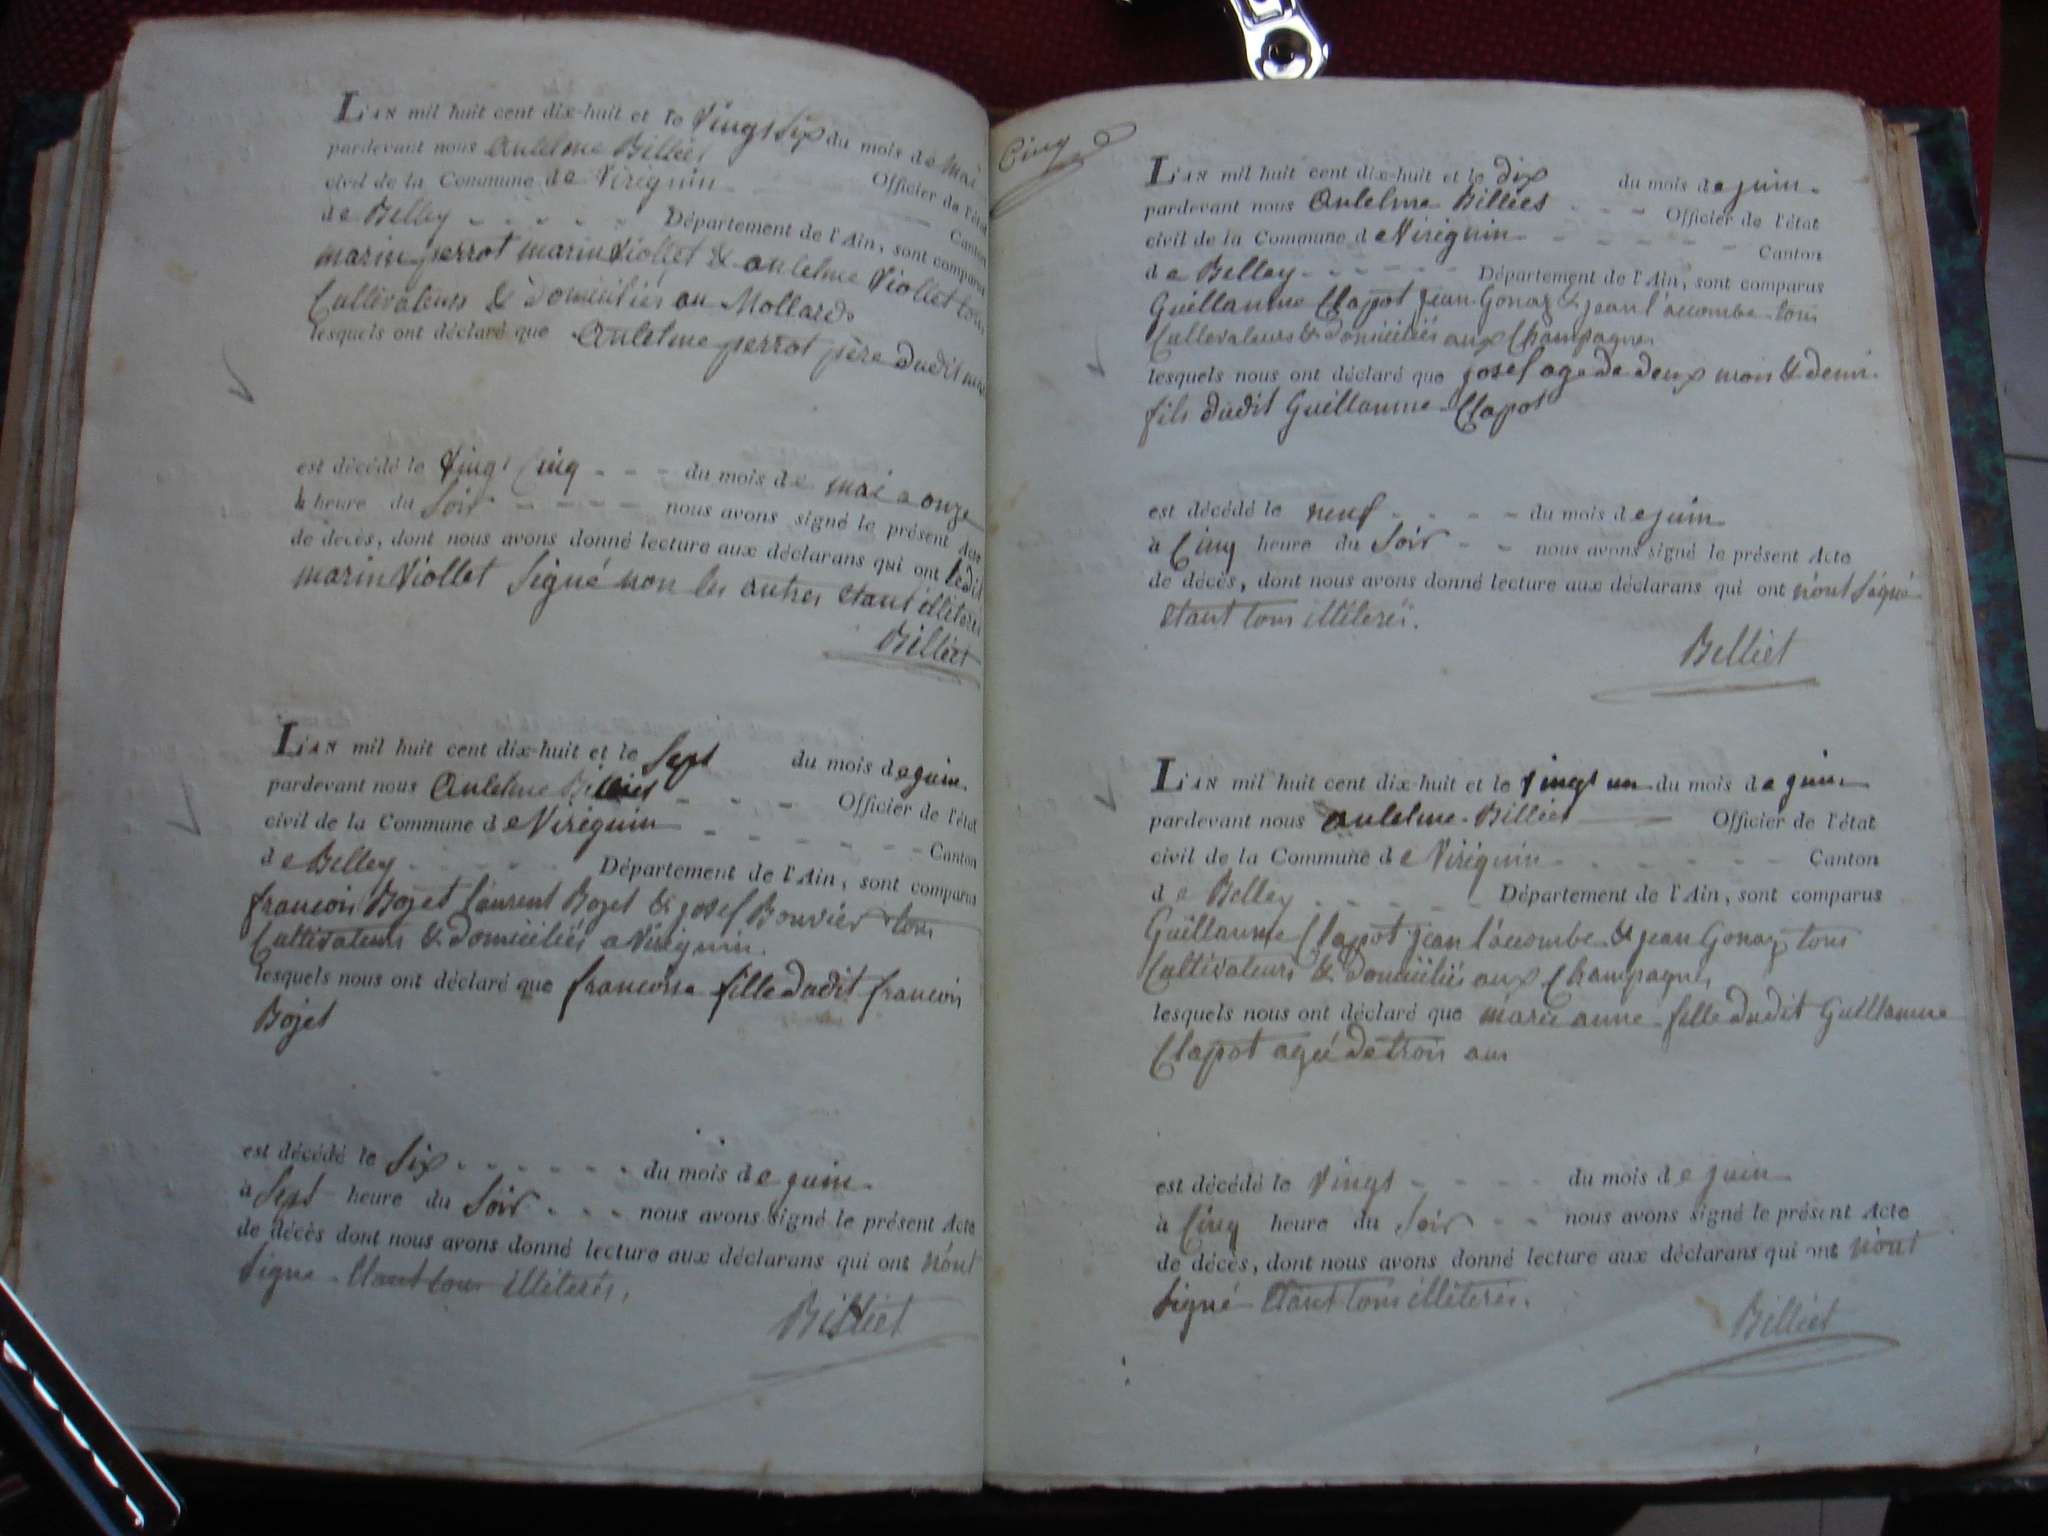 L'AN mil huit cent dix-huit et le vingt six du mois de mai
pardevant nous Antelme Billiet Officier de l'état
civil de la Commune de Virignin Canton
de Belley Département de l'Ain, sont comparus
marin perrot marin Viollet & antelme Viollet tous
Cultivateurs & domiciliés au Mollard
lesquels ont déclaré que Antelme perrot père dudit marin
est décédé le vingt Cinq du mois de mai a onze
heure du Soir nous avons signé le présent Acte
de décès, dont nous avons donné lecture aux déclarans qui ont ledit
marin Viollet Signé non les autres etant illiterés
Billiet
L'AN mil huit cent dix-huit et le Sept du mois de juin
pardevant nous Antelme Billiet Officier de l'état
civil de la Commune de Virignin Canton
de Belley Département de l'Ain, sont comparus
francois Bojet laurent Bojet & josef Bouvier tous
Cultivateurs & domiciliés a Virignin.
lesquels nous ont déclaré que francoise fille dudit francois
Bojet
est décédé le Six du mois de juin
à Sept heure du Soir nous avons signé le présent Acte
de décès dont nous avons donné lecture aux déclarans qui ont n'ont
Signé Etant tous illiterés,
Billiet
Cinq
L'AN mil huit cent dix-huit et le dix du mois de juin
pardevant nous Antelme Billiet Officier de l'état
civil de la Commune de Virignin Canton
de Belley Département de l'Ain, sont comparus
Guillaume Clapot jean Gonaz & jean l'acombe tous
Cultivateurs & domiciliés aux Champagnes
lesquels nous ont déclaré que josef age de deux mois & demi
fils dudit Guillaume Clapot
est décédé le neuf du mois de juin
à Cinq heure du Soir nous avons signé le présent Acte
de décès, dont nous avons donné lecture aux déclarans qui ont n'ont Signé
Etant tous illiterés.
Billiet
L'AN mil huit cent dix-huit et le vingt un du mois de juin
pardevant nous antelme Billiet Officier de l'état
civil de la Commune de Virignin Canton
de Belley Département de l'Ain, sont comparus
Guillaume Clapot jean l'acombe & jean Gonaz tous
Cultivateurs & domiciliés aux Champagnes
lesquels nous ont déclaré que marie anne fille dudit Guillaume
Clapot ageé de trois ans
est décédé le Vingt du mois de juin
à Cinq heure du Soir nous avons signé le présent Acte
de décès, dont nous avons donné lecture aux déclarans qui ont n'ont
Signé Etant tous illiterés.
Billiet